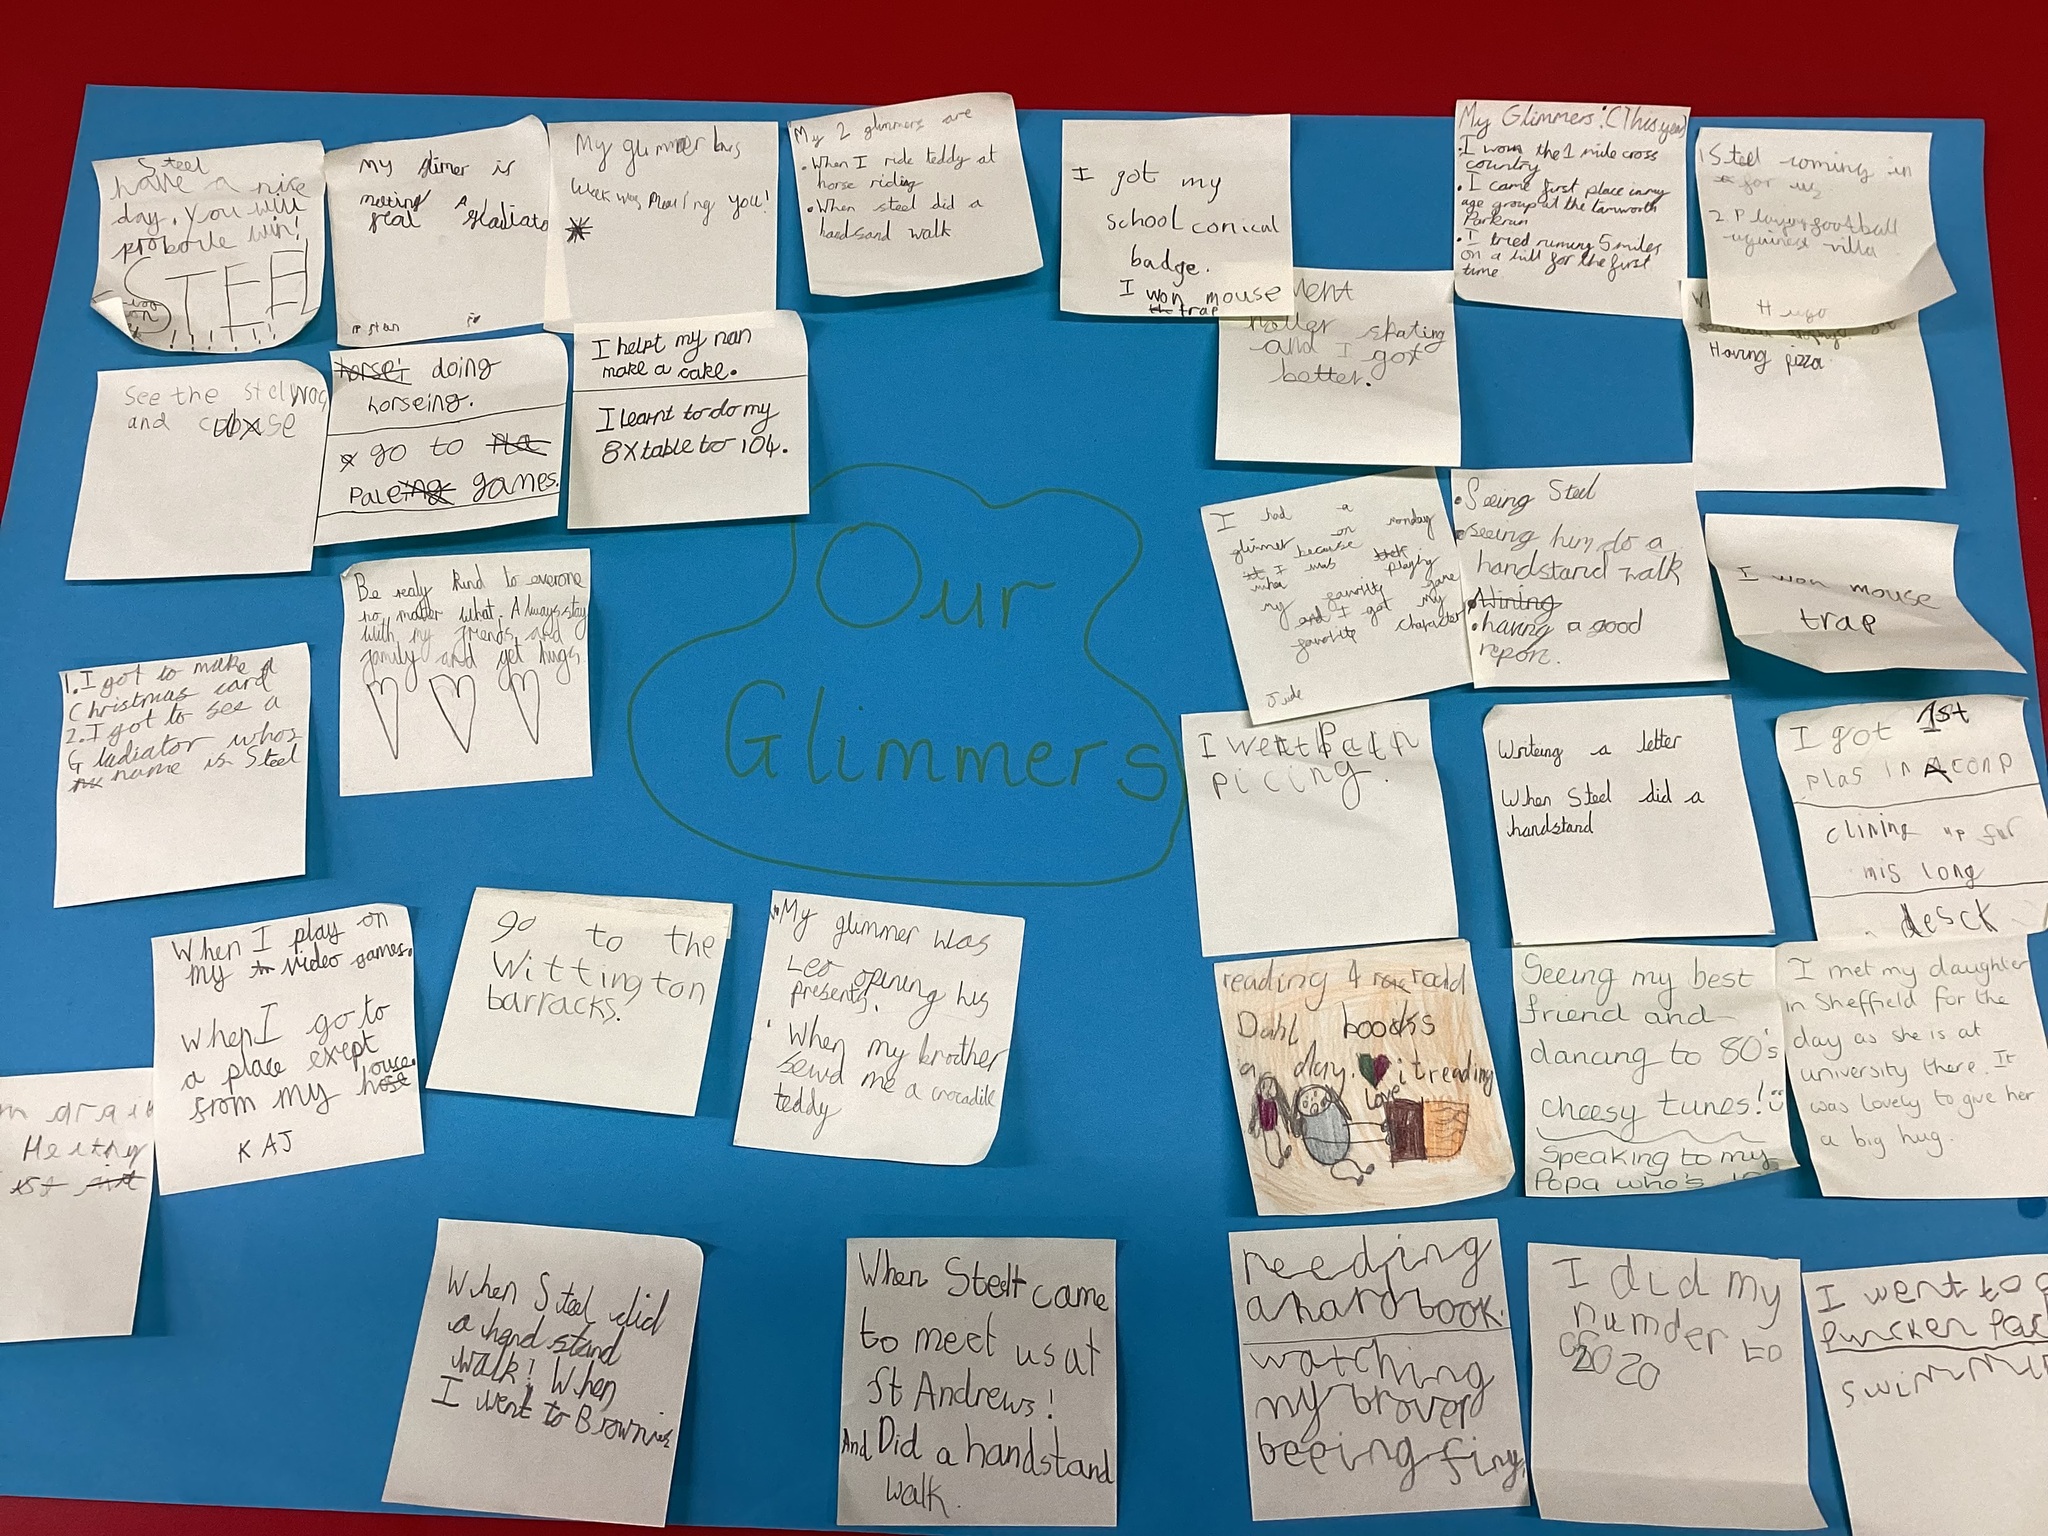 Steel
have a nice
day. you will
probarle win!
STEEL
!!!!!!
My slimer is
meeting a
real Gladiato
My glimmer this
week was meeting you!
My 2 glimmers are
• When I ride teddy at
horse riding
• When steel did a
handsand walk
I got my
school conical
badge.
I won mouse
the trap
My Glimmers: (This year)
• I won the 1 mile cross
country
• I came first place in my
age group at the tamworth
Parkrun
• I tried running 5 miles
on a hill for the first
time
1 Steel coming in
for us
2. Playing football
against villa
Hugo
ment
roller skating
and I got
better.
Having pizza
See the steel
and
horse: doing
horseing.
go to
games.
I helpt my nan
make a cake.
I learnt to do my
8x table to 104.
I had a
glimmer on monday
because
I was playing
my favorite game
and I got my
favorite character
Jude
• Seeing Steel
• seeing him do a
handstand walk
• Wining
• having a good
report.
I won mouse
trap
Be realy kind to everyone
no matter what. Always stay
with my friends and
family and get hugs
1. I got to make a
Christmas card
2. I got to see a
Gladiator whos
name is Steel
Our
Glimmers
I went
picing.
Writeing a letter
When Steel did a
handstand
I got 1st
plas in A conp
clining up for
mis long
desck
When I play on
my video games.
When I go to
a place exept
from my house.
KAJ
go to the
Wittington
barracks.
• My glimmer was
Leo opening his
presents.
• When my brother
sewd me a crocodile
teddy
reading 4 roald
Dahl boooks
a day. it reading
Love
Seeing my best
friend and
dancing to 80's
cheesy tunes!
Speaking to my
Popa who's
I met my daughter
in Sheffield for the
day as she is at
university there. It
was lovely to give her
a big hug.
When Steel did
a hand stand
walk! When
I went to Brownies
When Steel came
to meet us at
St Andrews!
And Did a handstand
walk.
reeding
a hard book.
watching
my brover
beeing finy.
I did my
numder to
2020
I went to
swimmi